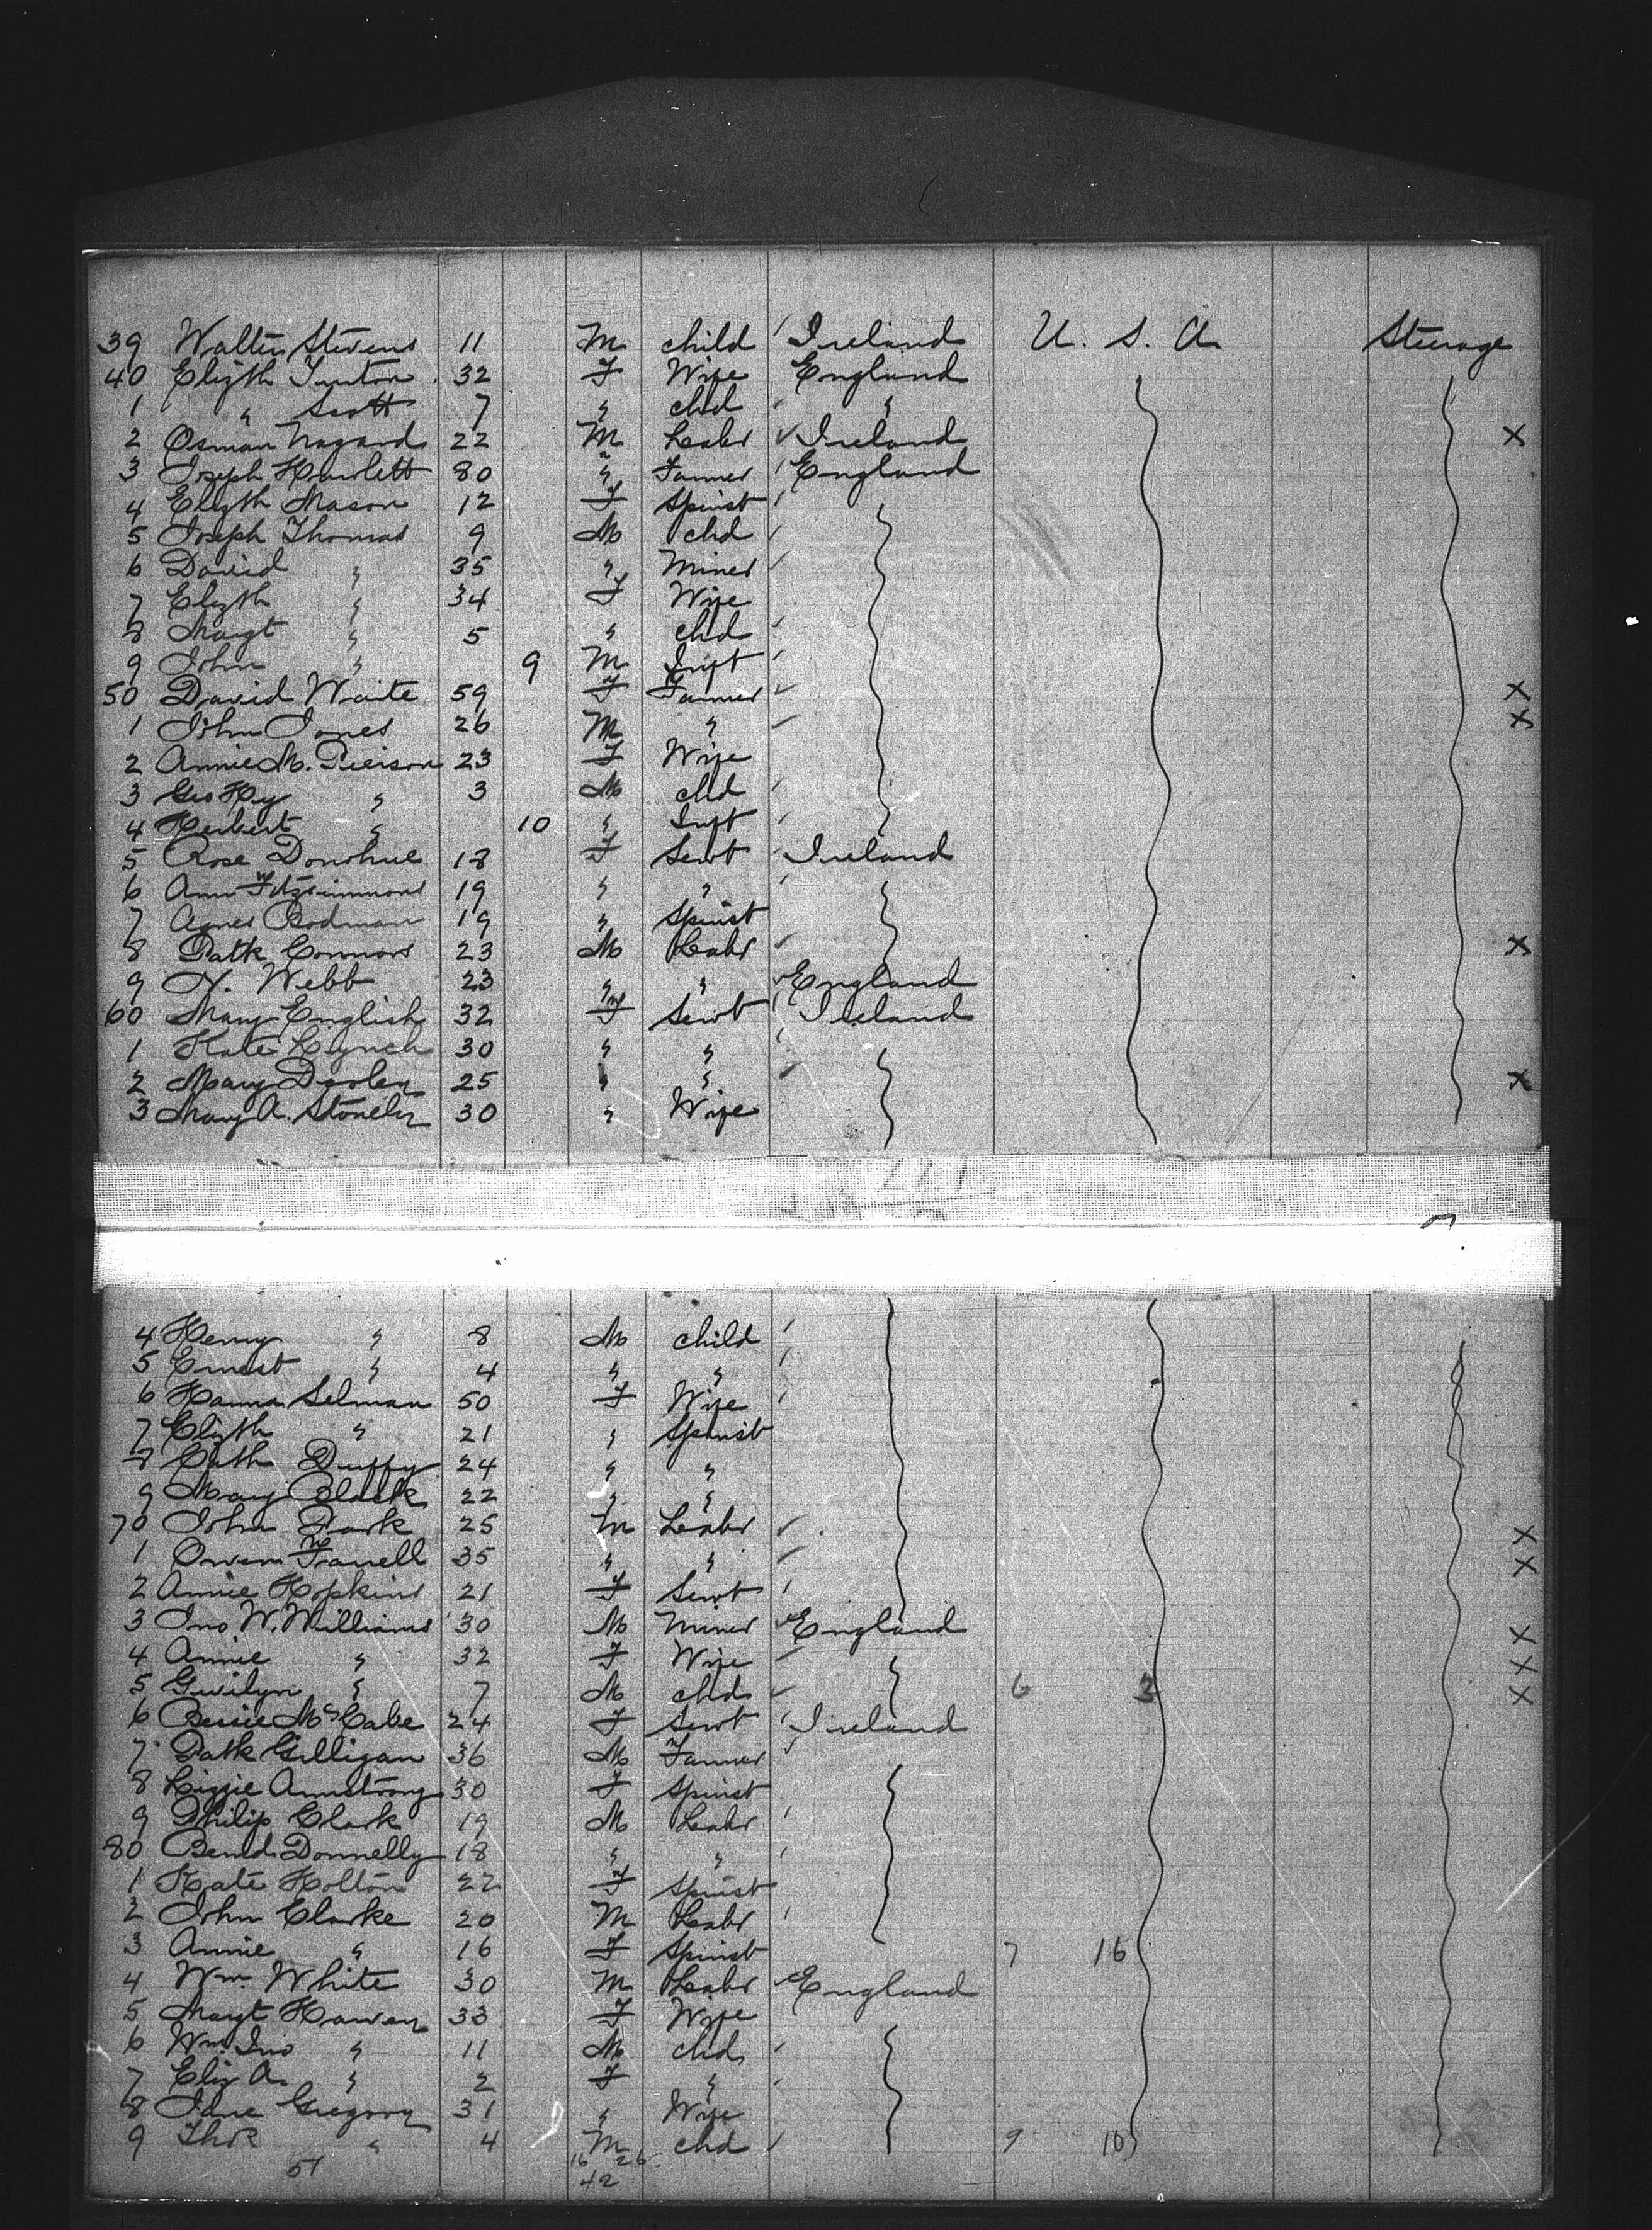 39 Walter Stevens 11 M child Ireland U. S. A Steerage
40 Elizth Turton 32 F Wife England
1 " Scott 7 " chd "
2 Osman Nagard 22 M Labr Ireland X
3 Joseph Howlett 80 " Farmer England
4 Elizth Mason 12 F Spinst
5 Joseph Thomas 9 M chd
6 David " 35 " Miner
7 Elizth " 34 F Wife
8 Margt " 5 " chd
9 John " 9 M Inft
50 David Waite 59 F Farmer X
1 John Jones 26 M " X
2 Annie M. Pierson 23 F Wife
3 Geo Hy " 3 M chd
4 Herbert " 10 " Inft
5 Rose Donohue 18 F Servt Ireland
6 Ann Fitzsimmons 19 " "
7 Agnes Bodman 19 " Spinst
8 Patk Connors 23 M Labr X
9 Webb 23 " " England
60 Mary English 32 F Servt Ireland
1 Kate Lynch 30 " "
2 Mary Dooley 25 " " X
3 Mary A. Stoneley 30 " Wife
4 Henry " 8 M child
5 Ernest " 4 " "
6 Hanna Selman 50 F Wife
7 Elizth " 21 " Spinst
8 Cath Duffy 24 " "
9 Mary Black 22 " "
70 John Park 25 M Labr X
1 Owen Farrell 35 " " X
2 Annie Hopkins 21 F Servt
3 Jno W. Williams 30 M Miner England X
4 Annie " 32 F Wife X
5 Gwilym " 7 M chd 6 2 X
6 Bessie McCabe 24 F Servt Ireland
7 Patk Gilligan 36 M Farmer
8 Lizzie Armstrong 30 F Spinst
9 Philip Clark 19 M Labr
80 Bernd Donnelly 18 " "
1 Kate Holton 22 F Spinst
2 John Clarke 20 M Labr
3 Annie " 16 F Spinst 7 16
4 Wm. White 30 M Labr England
5 Margt Hawen 33 F Wife
6 Wm. Jno " 11 M chd
7 Eliz A. " 2 F "
8 Jane Gregory 31 " Wife
9 Thos " 4 M chd 9 10
51 16 26
42